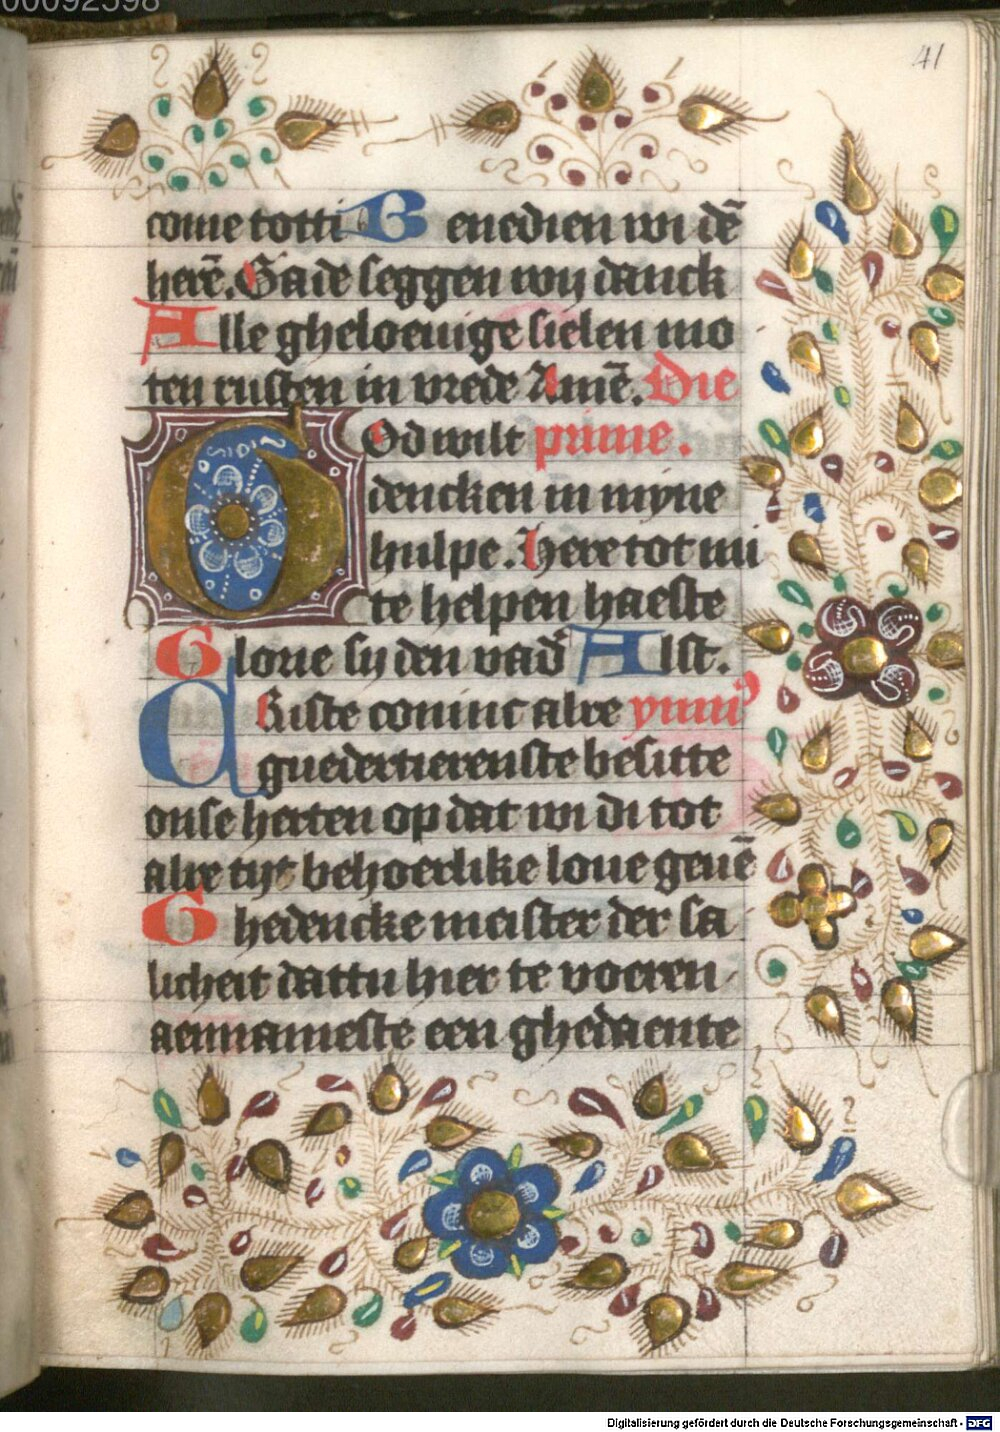 00092598
41
come totti Benedien wi dē
herē. Gade seggen wij danck
Alle gheloeuige sielen mo
ten rusten in vrede Amē. Die
God wilt prime.
dencken in myne
hulpe. Here tot mi
te helpen haeste
Glorie sy den vad Alst.
Criste coninc alre ymnꝰ
guedertierenste besitte
onse herten op dat wi di tot
alre tijt behoerlike loue geuē
Ghedencke meister der sa
licheit dattu hier te voeren
aennameste een ghedaente
Digitalisierung gefördert durch die Deutsche Forschungsgemeinschaft - DFG